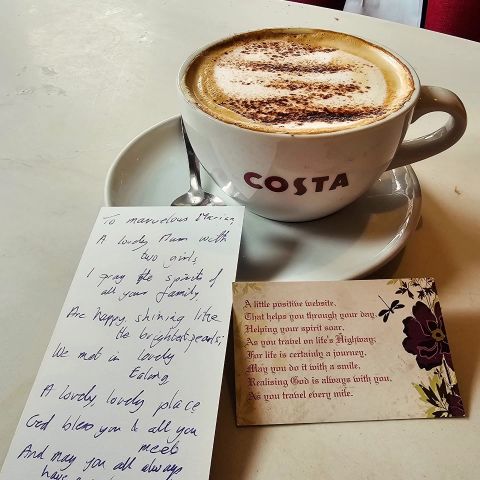 COSTA
To marvelous
A lovely Mum with
two girls,
I pray the spirits of
all your family
Are happy, shining like
the brightest pearls;
We met in lovely
Ealing
A lovely, lovely place
God bless you & all you
meet
And may you all always
have
A little positive website,
That helps you through your day,
Helping your spirit soar,
As you travel on life's Highway;
For life is certainly a journey,
May you do it with a smile,
Realising God is always with you,
As you travel every mile.